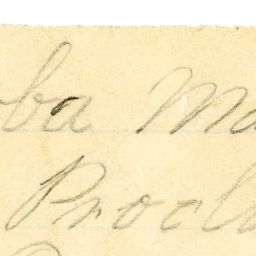 ba Ma
Procla